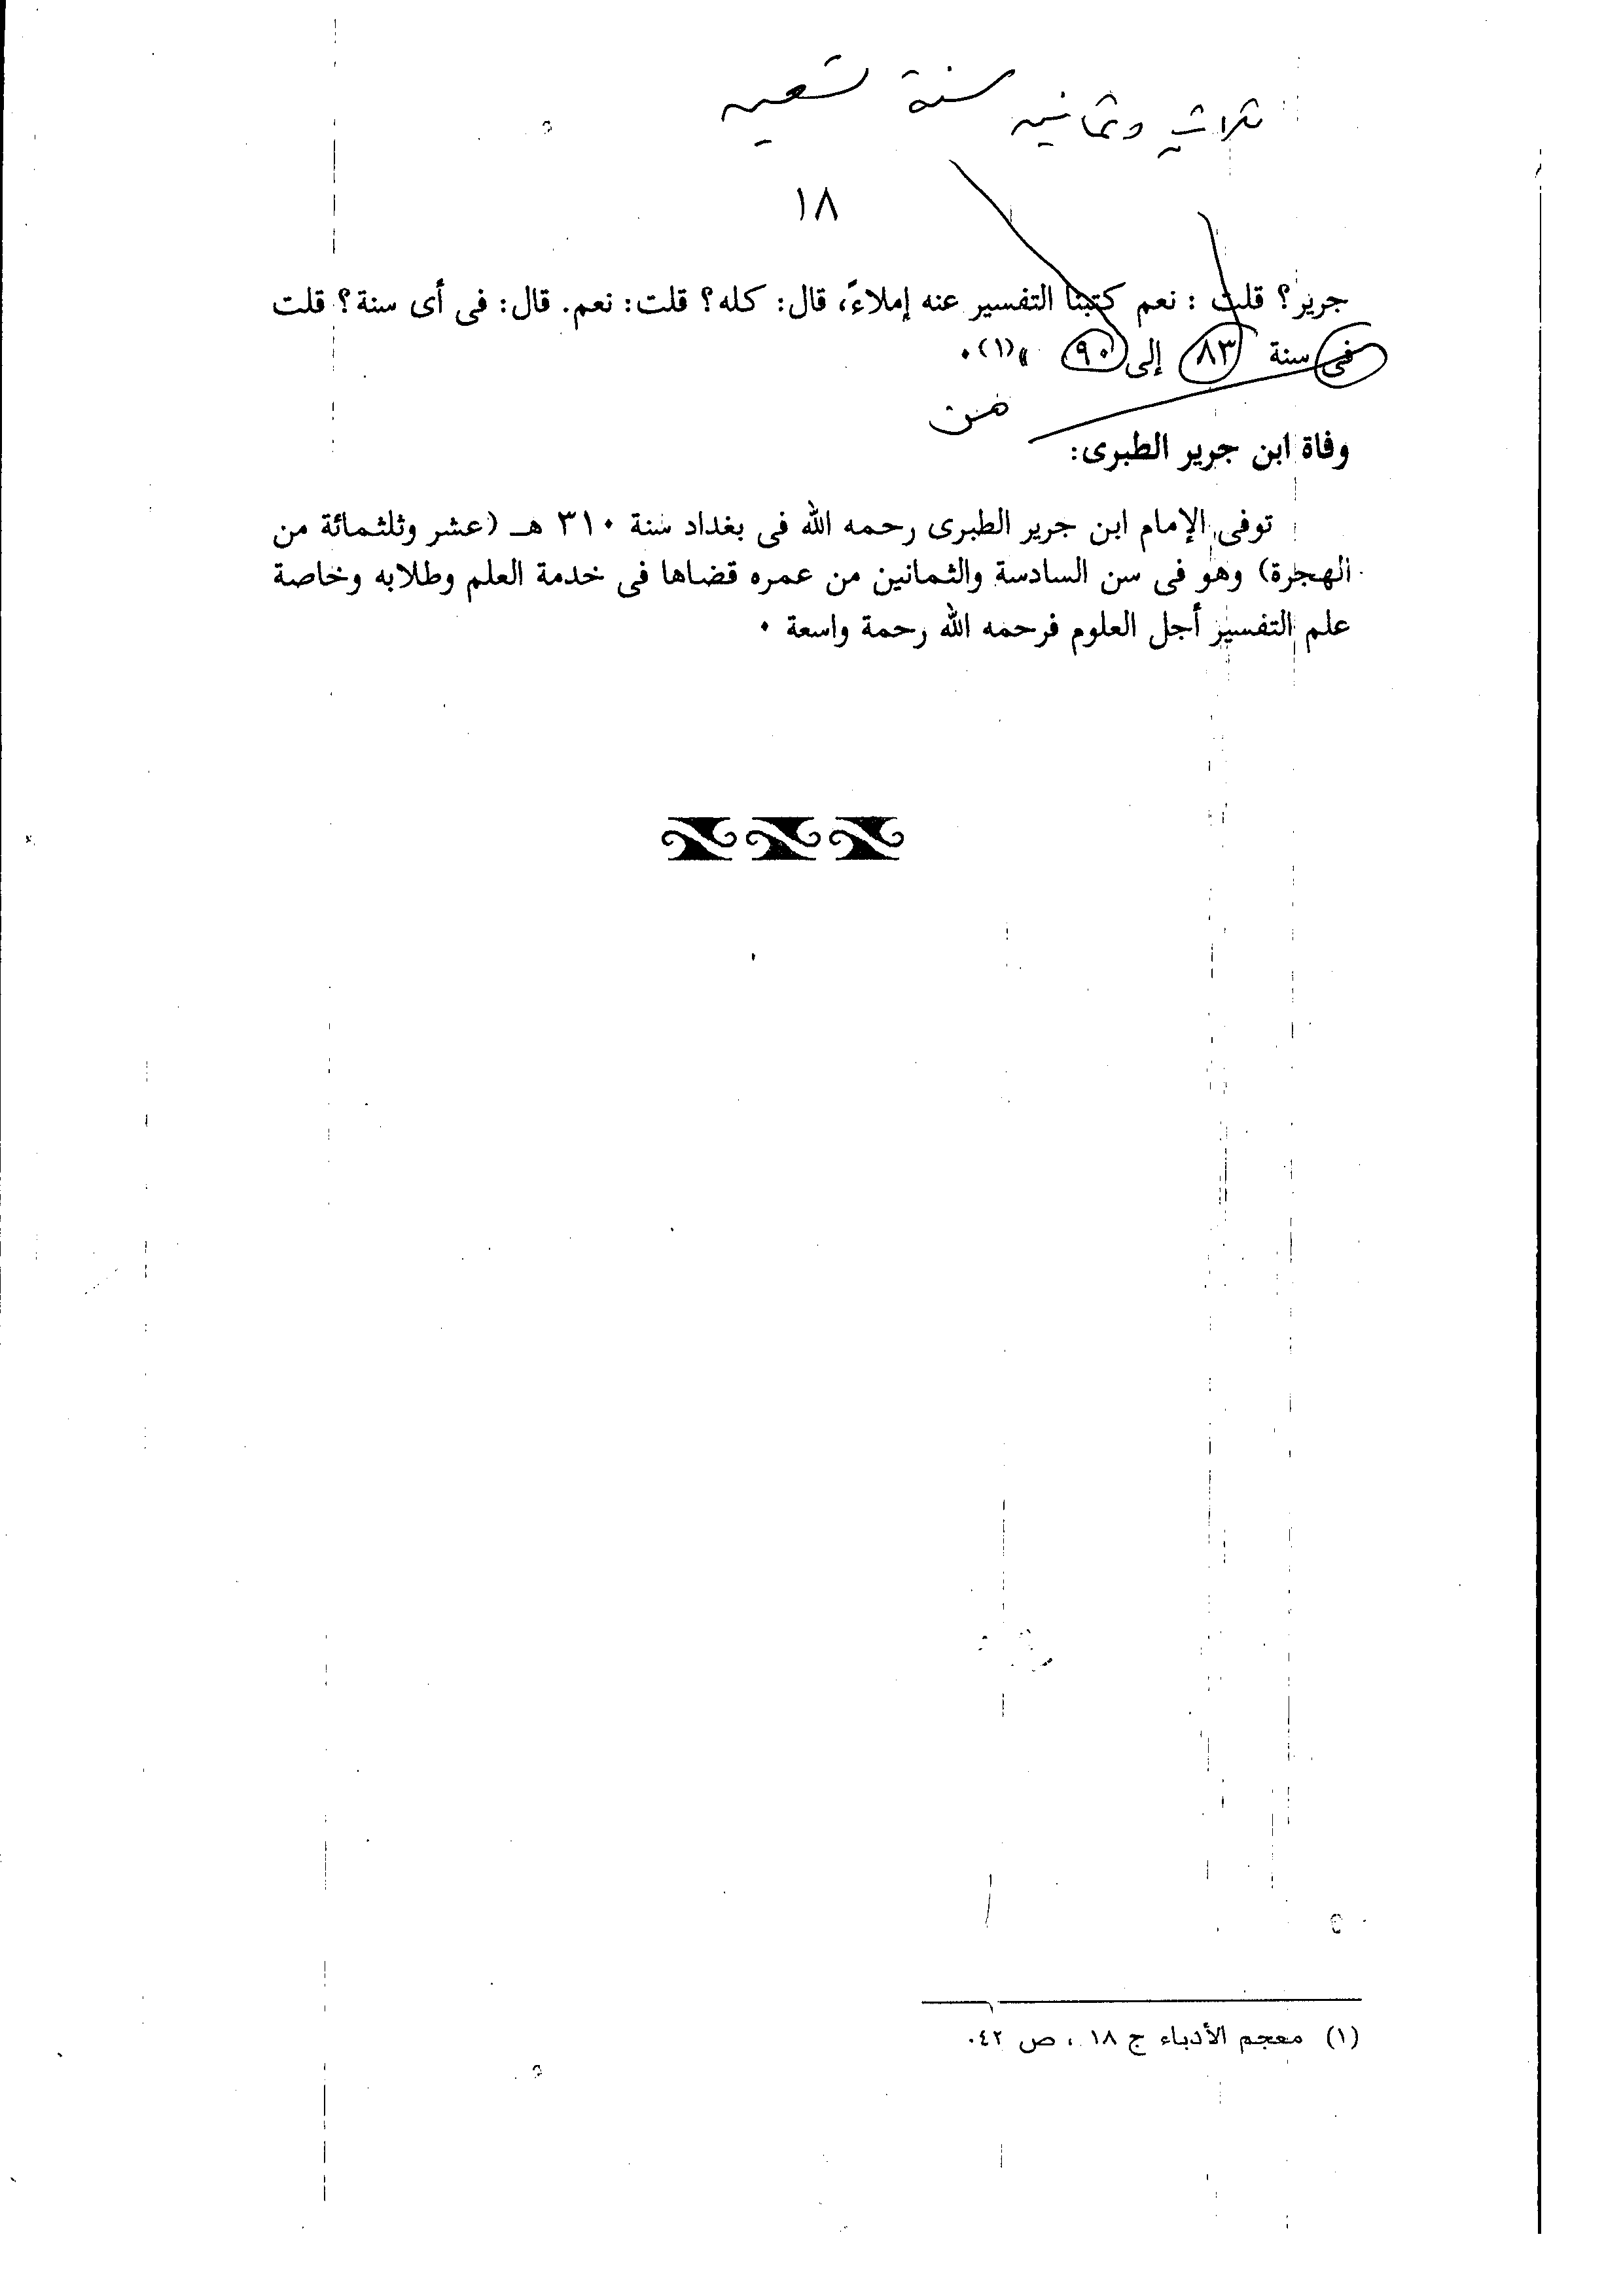 ثلاث وثمانين سنة تسعين
١٨
جرير؟ قلت : نعم كتبنا التفسير عنه إملاءً، قال: كله؟ قلت: نعم. قال: فى أى سنة؟ قلت
فى سنة ٨٣ إلى ٩٠ »(١).
من
وفاة ابن جرير الطبرى:
توفى الإمام ابن جرير الطبرى رحمه الله فى بغداد سنة ٣١٠ هـ (عشر وثلثمائة من
الهجرة) وهو فى سن السادسة والثمانين من عمره قضاها فى خدمة العلم وطلابه وخاصة
علم التفسير أجل العلوم فرحمه الله رحمة واسعة .
(١) معجم الأدباء ج ١٨ ، ص ٤٢.